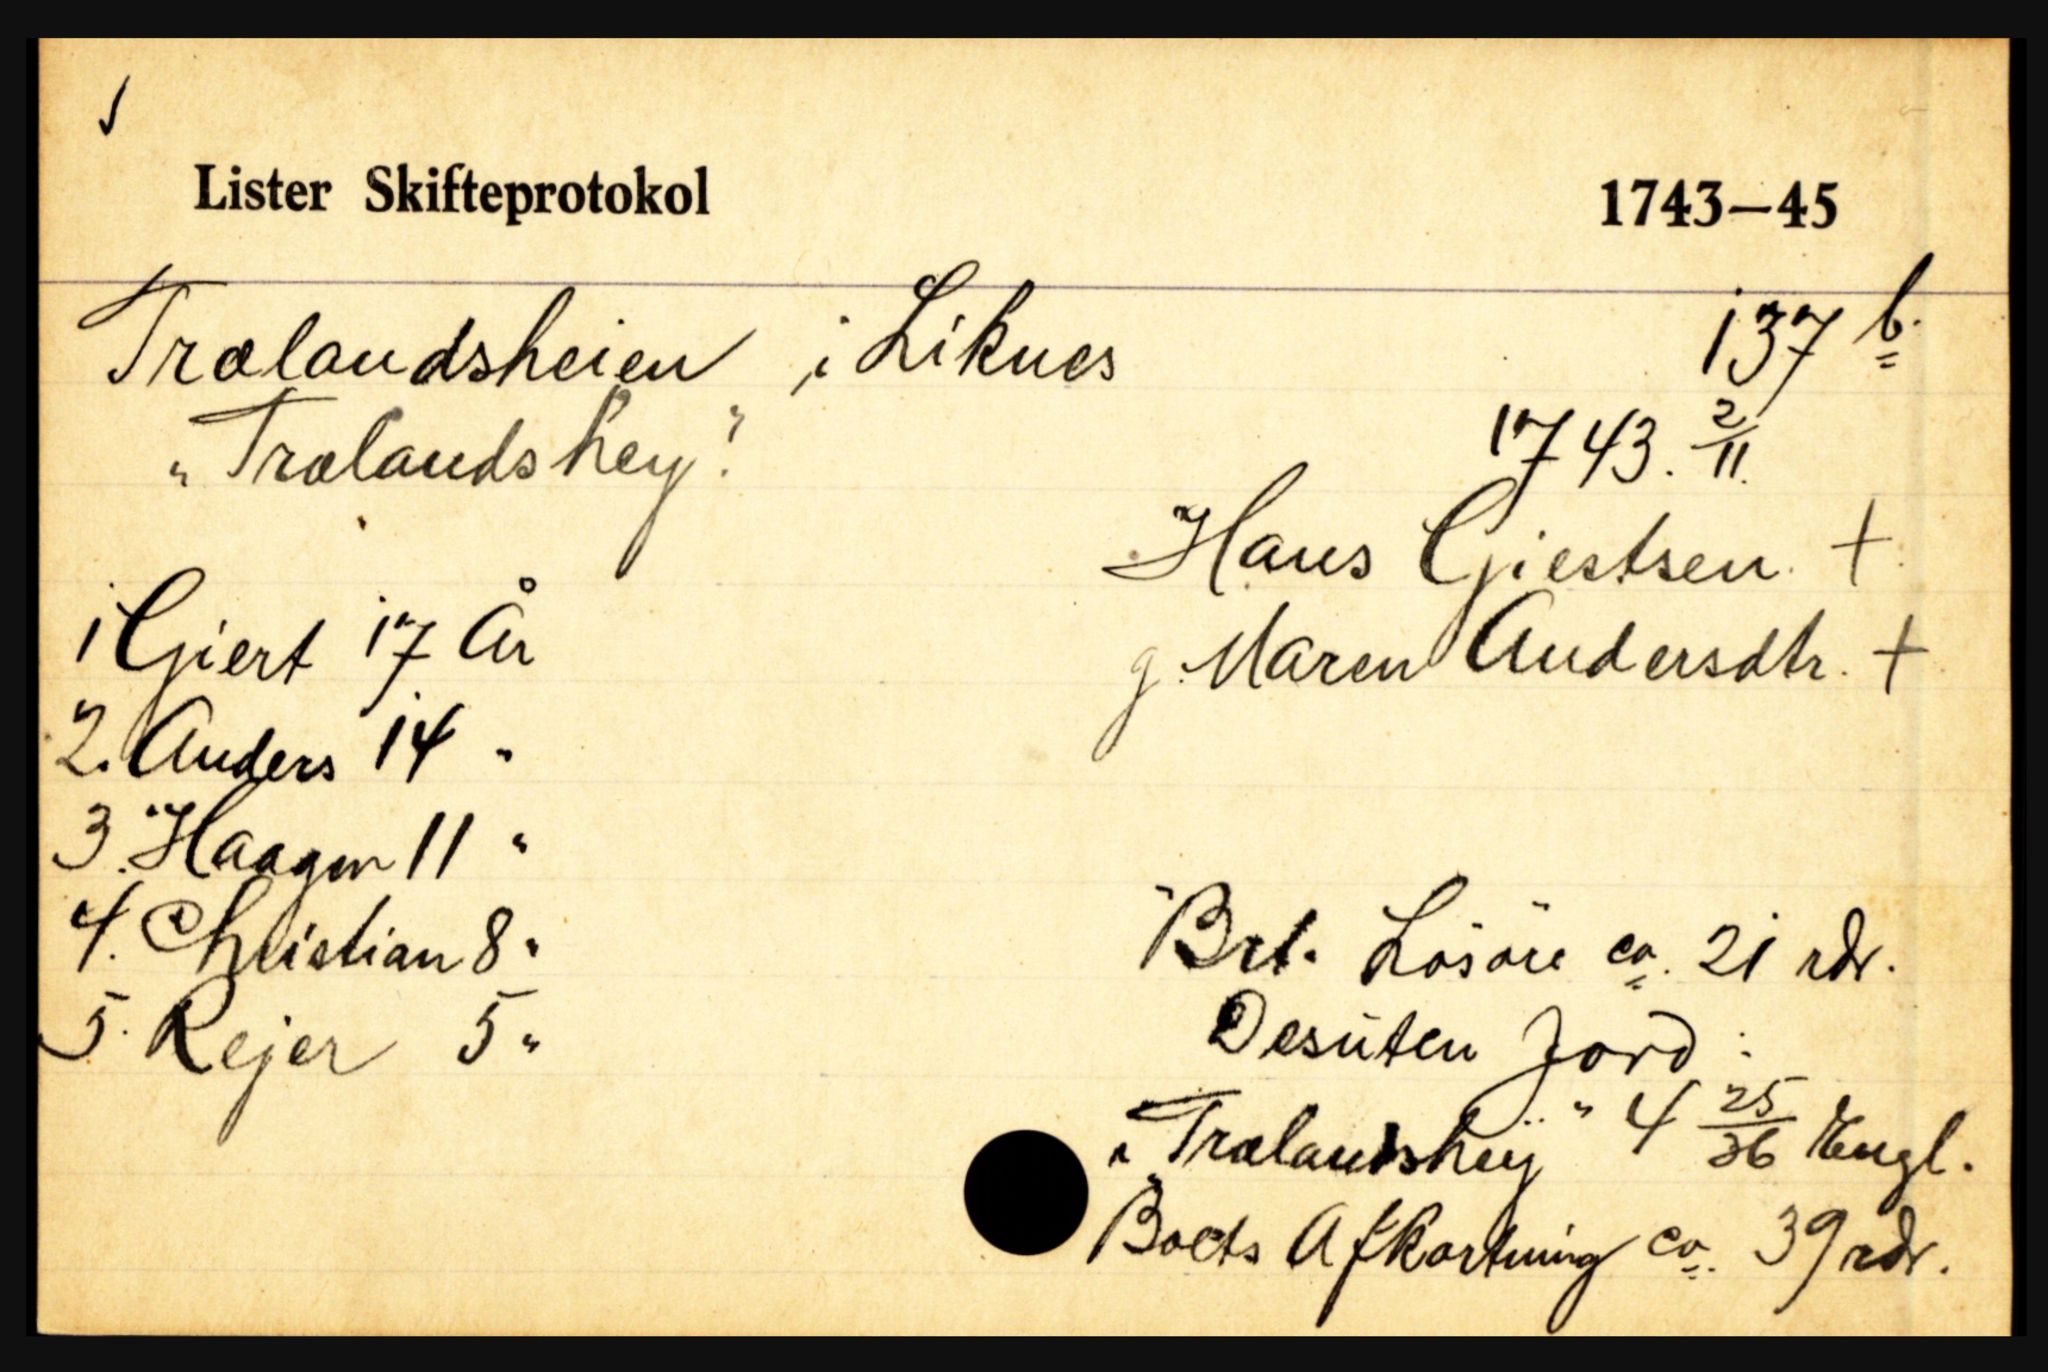 Lister Skifteprotokol 1743—45
Trælandsheien i Liknes 137 b.
"Trælandshey". 1743. 2/11.
Hans Gjertsen. +
1 Gjert 17 År
g. Maren Andersdtr. +
2. Anders 14 "
3. Haagen 11 "
4. Christian 8 "
Brt. Løsøre ca. 21 rdr.
5. Rejer 5 "
Desuten Jord:
"Trælandsheÿ" 4 25/36 Engl.
Boets Afkortning ca. 39 rdr.